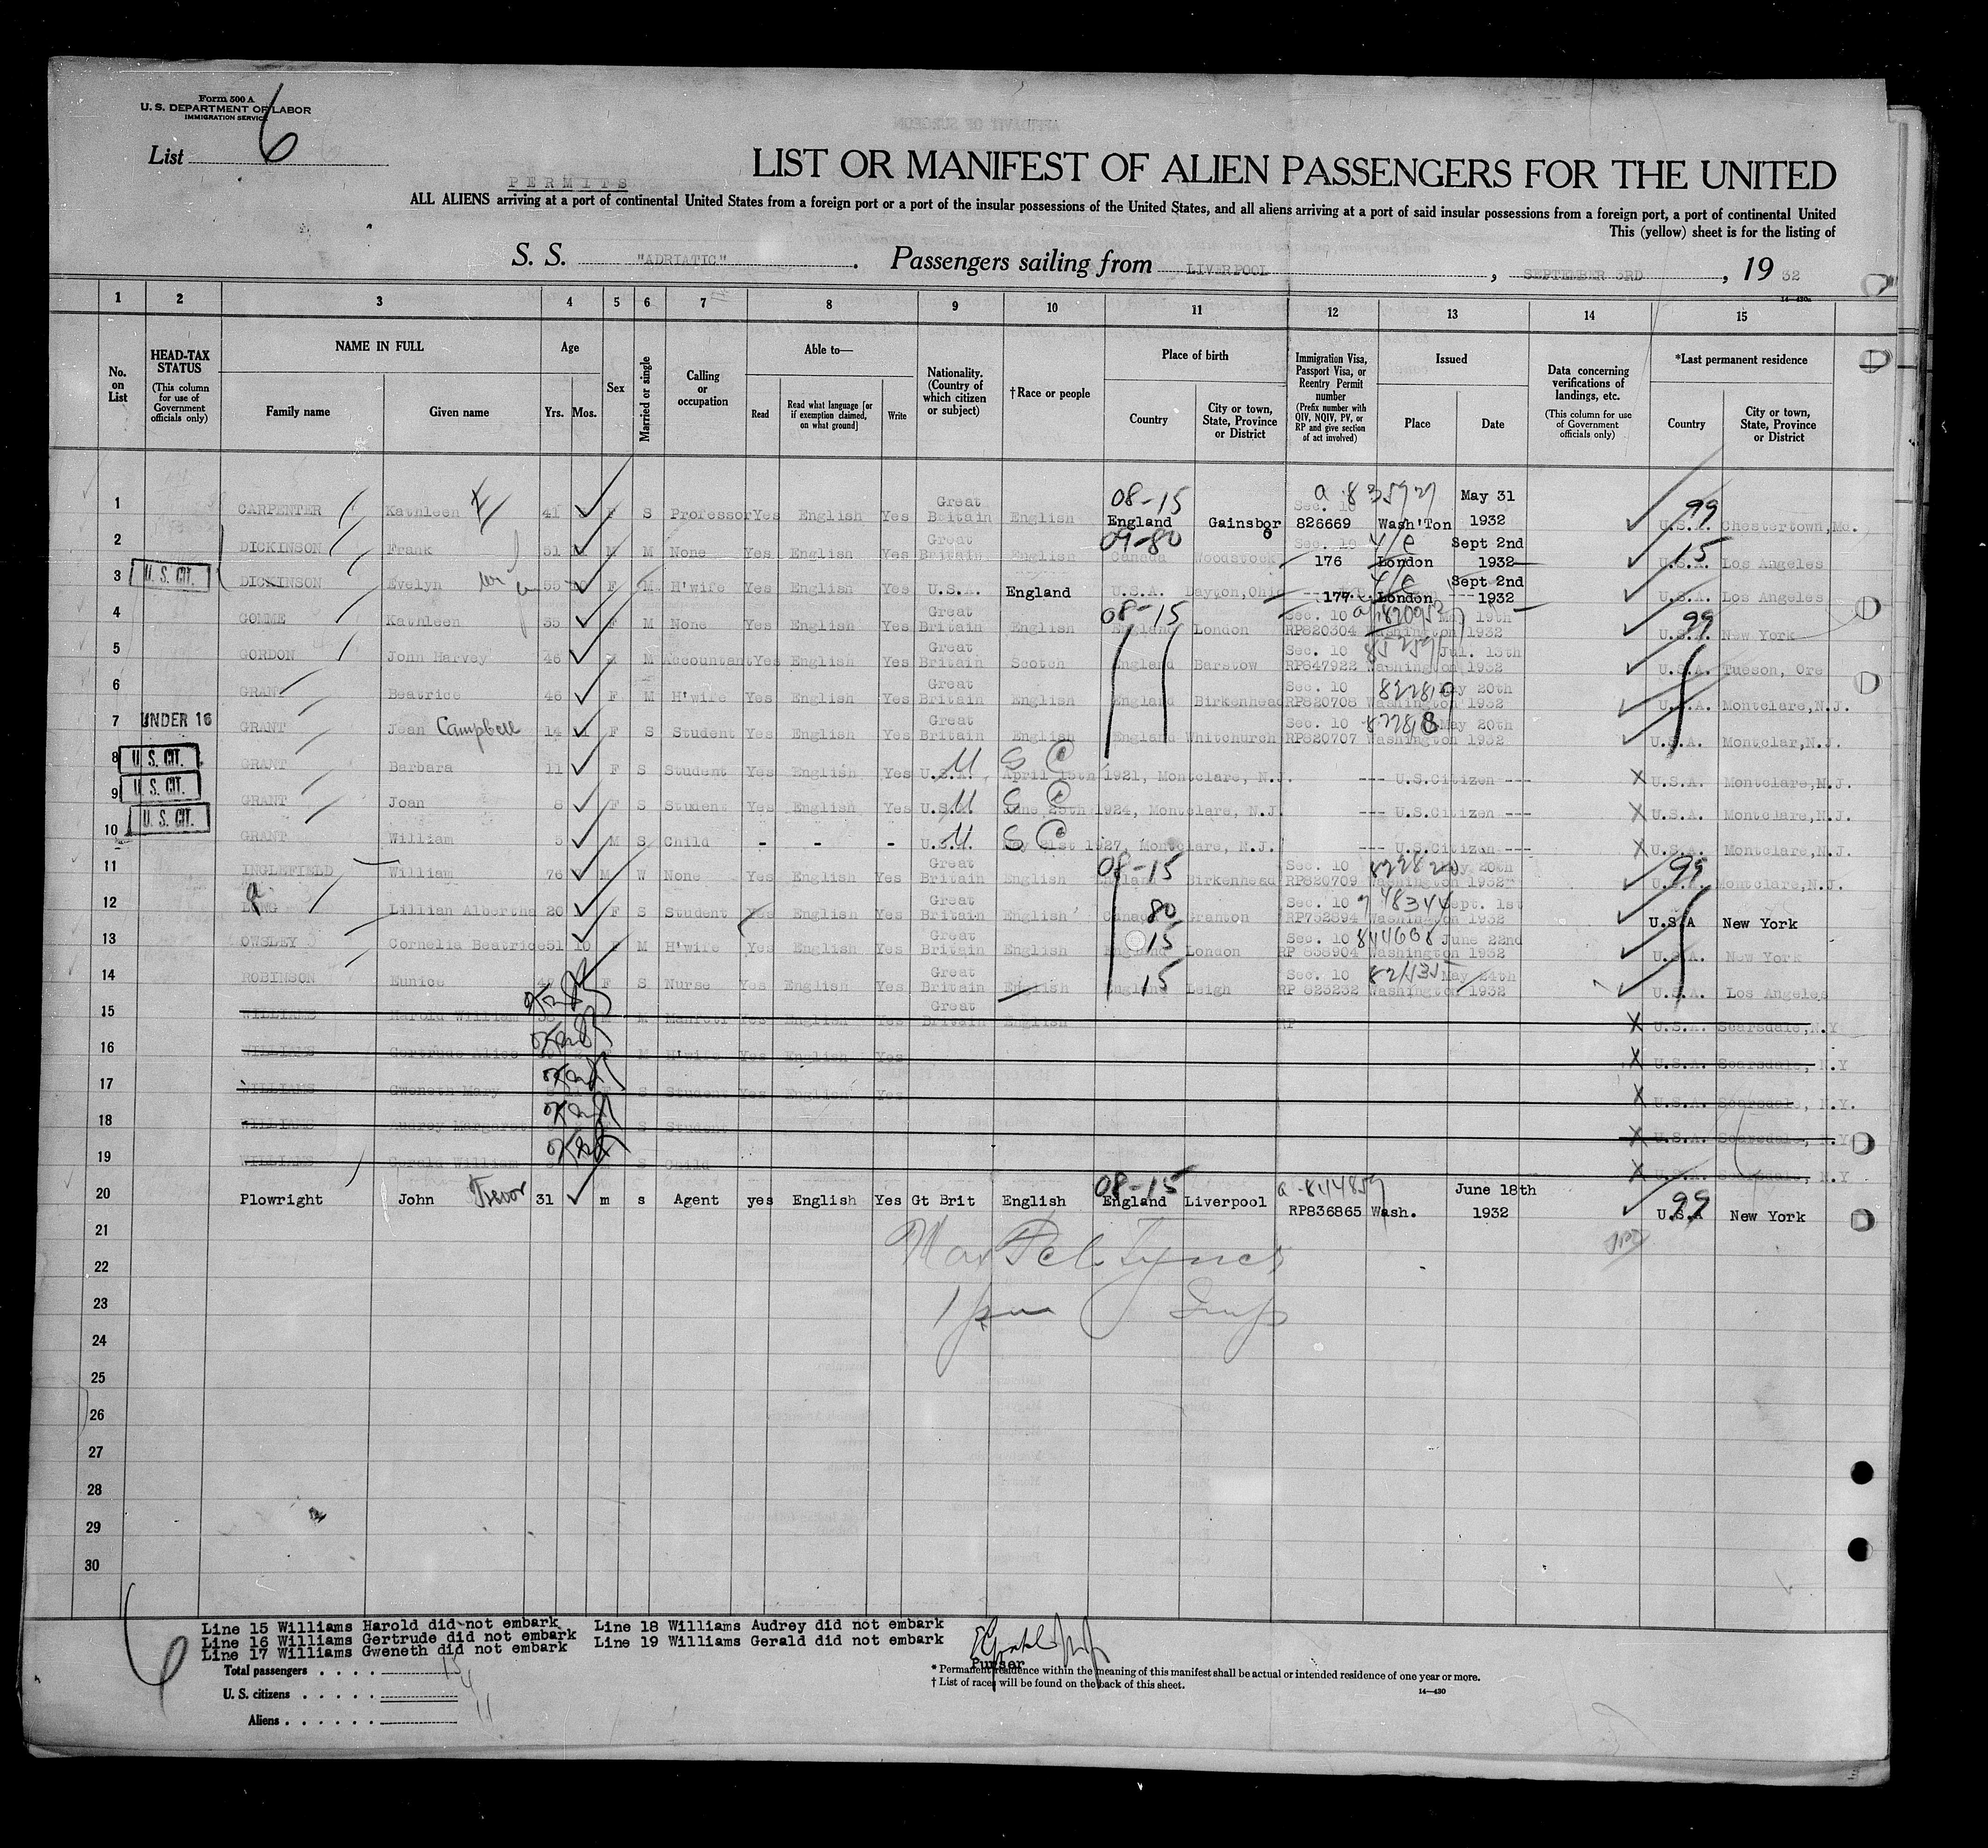 Form 500 A
U. S. DEPARTMENT OF LABOR
IMMIGRATION SERVICE
List 6
PERMITS
LIST OR MANIFEST OF ALIEN PASSENGERS FOR THE UNITED
ALL ALIENS arriving at a port of continental United States from a foreign port or a port of the insular possessions of the United States, and all aliens arriving at a port of said insular possessions from a foreign port, a port of continental United
This (yellow) sheet is for the listing of
S. S. "ADRIATIC". Passengers sailing from LIVERPOOL, SEPTEMBER 3RD, 19 32
14—430a
1 2 3 4 5 6 7 8 9 10 11 12 13 14 15
No. on List
HEAD-TAX STATUS (This column for use of Government officials only)
NAME IN FULL Family name Given name
Age Yrs. Mos.
Sex
Married or single
Calling or occupation
Able to— Read Read what language [or if exemption claimed, on what ground] Write
Nationality. (Country of which citizen or subject)
†Race or people
Place of birth Country City or town, State, Province or District
Immigration Visa, Passport Visa, or Reentry Permit number (Prefix number with QIV, NQIV, PV, or RP and give section of act involved)
Issued Place Date
Data concerning verifications of landings, etc. (This column for use of Government officials only)
*Last permanent residence Country City or town, State, Province or District
1 CARPENTER Kathleen 41 F S Professor Yes English Yes Great Britain English 08-15 England Gainsboro Sec. 10 826669 a 835727 Wash'Ton May 31 1932 99 U.S.A. Chestertown, Mo.
2 DICKINSON Frank 51 M M None Yes English Yes Great Britain English 09-80 Canada Woodstock Sec. 10 176 London Sept 2nd 1932 15 U.S.A. Los Angeles
3 U. S. CIT. DICKINSON Evelyn 55 F M H'wife Yes English Yes U.S.A. England U.S.A. Dayton, Ohio 177 London Sept 2nd 1932 U.S.A. Los Angeles
4 GOMME Kathleen 35 F M None Yes English Yes Great Britain English 08-15 England London Sec. 10 RP820304 Washington May 19th 1932 99 U.S.A. New York
5 GORDON John Harvey 46 M M Accountant Yes English Yes Great Britain Scotch England Barstow Sec. 10 RP847922 Washington Jul. 13th 1932 U.S.A. Tucson, Ore
6 GRANT Beatrice 46 F M H'wife Yes English Yes Great Britain English England Birkenhead Sec. 10 RP820708 Washington May 20th 1932 U.S.A. Montclare, N.J.
7 UNDER 16 GRANT Jean Campbell 14 F S Student Yes English Yes Great Britain English England Whitchurch Sec. 10 RP820707 Washington May 20th 1932 U.S.A. Montclar, N.J.
8 U. S. CIT. GRANT Barbara 11 F S Student Yes English Yes U.S.A. U S C April 15th 1921, Montclare, N.J. --- U.S.Citizen --- X U.S.A. Montclare, N.J.
9 U. S. CIT. GRANT Joan 8 F S Student Yes English Yes U.S.A. U S C June 25th 1924, Montclare, N.J. --- U.S.Citizen --- X U.S.A. Montclare, N.J.
10 U. S. CIT. GRANT William 5 M S Child - - - U.S.A. U S C May 21st 1927, Montclare, N.J. --- U.S.Citizen --- X U.S.A. Montclare, N.J.
11 INGLEFIELD William 76 M W None Yes English Yes Great Britain English 08-15 England Birkenhead Sec. 10 RP820709 Washington May 20th 1932 99 U.S.A. Montclare, N.J.
12 LANG Lillian Albertha 20 F S Student Yes English Yes Great Britain English Canada 80 Granton Sec. 10 RP752894 748344 Washington Sept. 1st 1932 U.S.A New York
13 OWSLEY Cornelia Beatrice 51 10 F M H'wife Yes English Yes Great Britain English England 15 London Sec. 10 RP 838904 844608 Washington June 22nd 1932 U.S.A. New York
14 ROBINSON Eunice F S Nurse Yes English Yes Great Britain English England 15 Leigh Sec. 10 RP 823232 Washington May 24th 1932 U.S.A. Los Angeles
15 WILLIAMS Harold William M Yes English Yes Great Britain English RP X U.S.A. Scarsdale, N.Y
16 WILLIAMS Gertrude Alice M H'wife Yes English Yes X U.S.A. Scarsdale, N.Y
17 WILLIAMS Gweneth Mary S Student Yes English Yes X U.S.A. Scarsdale, N.Y.
18 WILLIAMS Audrey Margaret S Student X U.S.A. Scarsdale, N.Y
19 WILLIAMS Gerald William S Child X U.S.A. Scarsdale, N.Y
20 Plowright John Trevor 31 m s Agent yes English Yes Gt Brit English 08-15 England Liverpool RP836865 Wash. June 18th 1932 99 U.S.A New York
21
22
23
24
25
26
27
28
29
30
Line 15 Williams Harold did not embark Line 18 Williams Audrey did not embark
Line 16 Williams Gertrude did not embark Line 19 Williams Gerald did not embark
Line 17 Williams Gweneth did not embark
Purser
Total passengers . . . . 15
U. S. citizens . . . . . 4
Aliens . . . . . . 11
* Permanent residence within the meaning of this manifest shall be actual or intended residence of one year or more.
† List of races will be found on the back of this sheet.
14—430